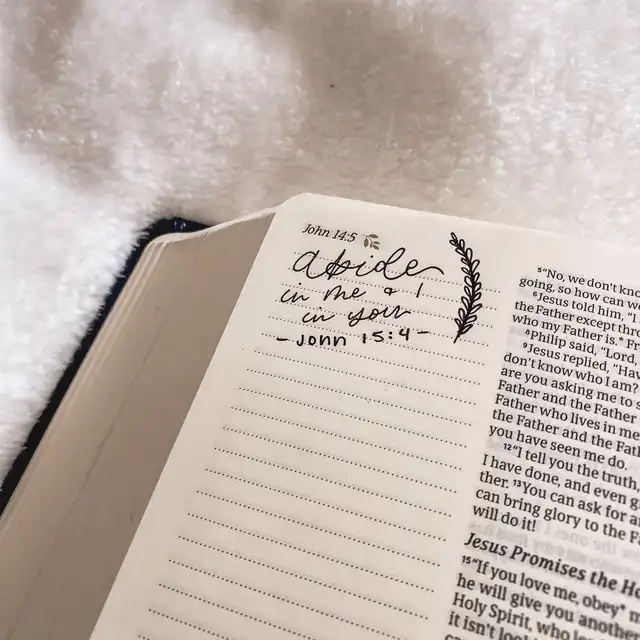 John 14:5
abide
in me & I
in you
- John 15:4 -
5“No, we don't kno
going, so how can we
6Jesus told him, “I
the Father except thro
who my Father is.* Fr
8Philip said, “Lord,
9Jesus replied, “Hav
don't know who I am?
are you asking me to s
Father and the Father
Father who lives in me
the Father and the Fath
you have seen me do.
12“I tell you the truth,
I have done, and even g
ther. 13You can ask for a
can bring glory to the Fa
will do it!
Jesus Promises the Ho
15“If you love me, obey*
he will give you anothe
Holy Spirit, who
it isn't